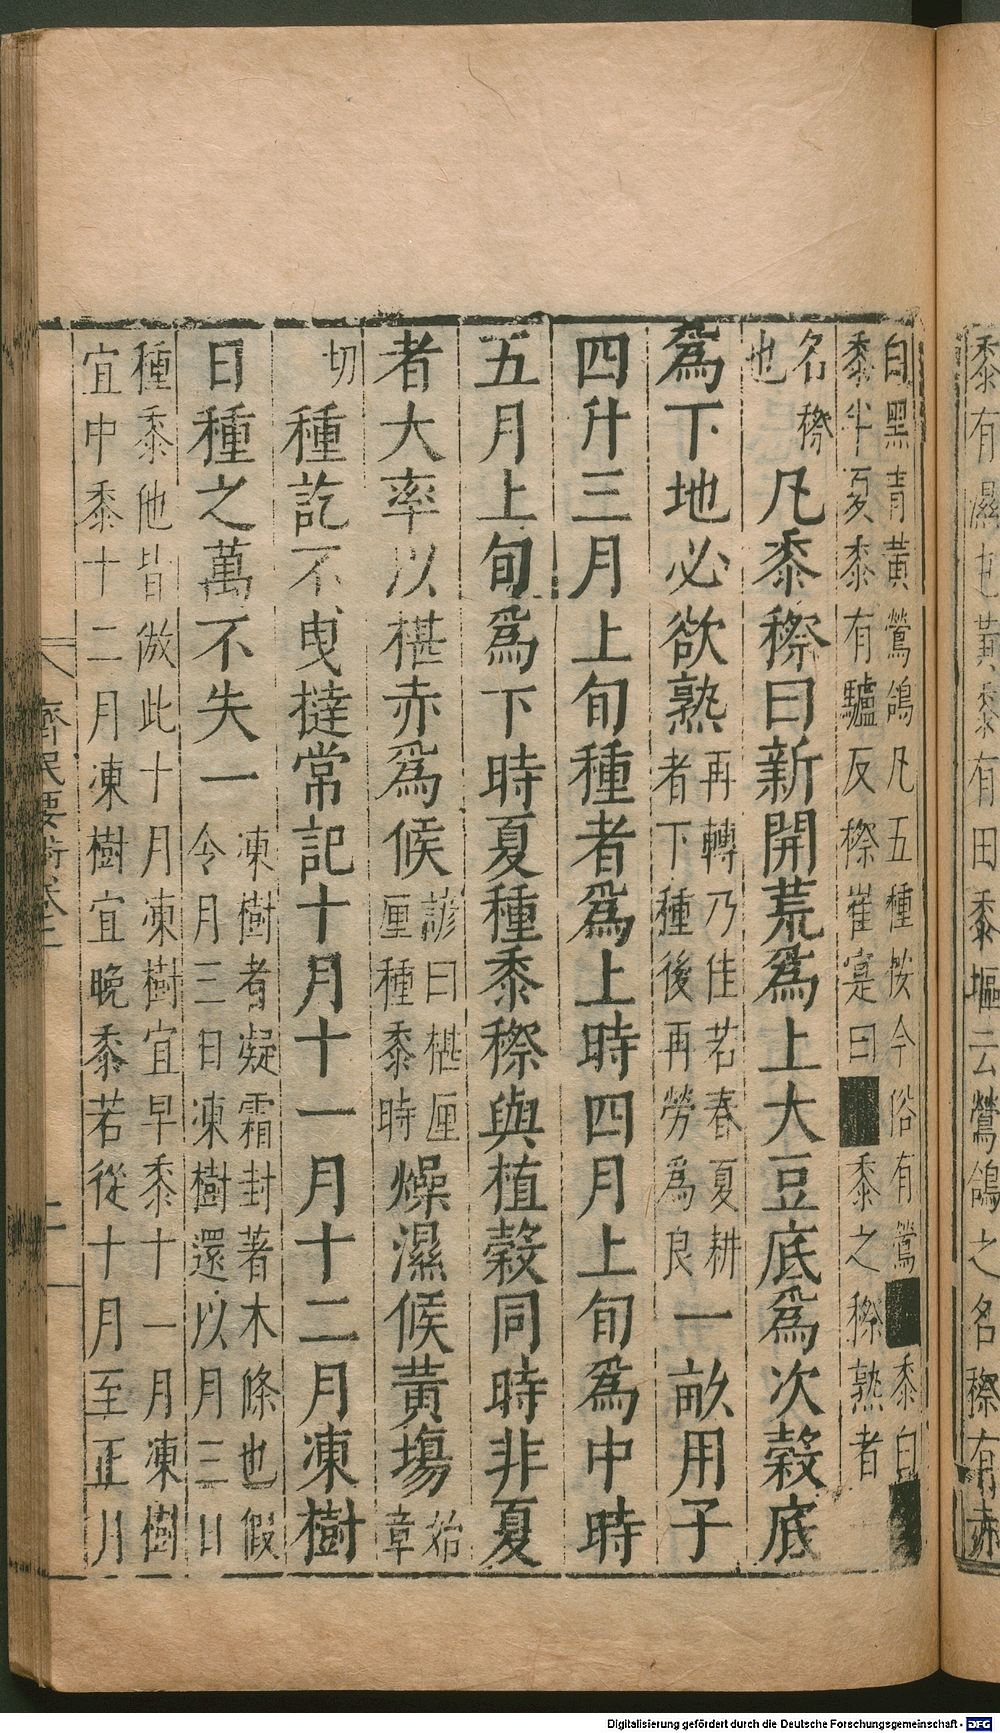 黍有濕也黃黍有田黍塸云鶯鴿之名穄有赤
白黑青黃鶯鴿凡五種按今俗有鶯■黍白■
黍半夏黍有驢反穄崔寔曰■黍之穄熟者
名穄
也
凡黍穄曰新開荒爲上大豆底爲次穀底
爲下地必欲熟
再轉乃佳若春夏耕
者下種後再勞爲良
一畝用子
四升三月上旬種者爲上時四月上旬爲中時
五月上旬爲下時夏種黍穄與植穀同時非夏
者大率以椹赤爲候
諺曰椹厘
厘種黍時
燥濕候黃塲
始
章
切
種訖不曳撻常記十月十一月十二月凍樹
日種之萬不失一
凍樹者凝霜封著木條也假
令月三日凍樹還以月三日
種黍他皆倣此十月凍樹宜早黍十一月凍樹
宜中黍十二月凍樹宜晚黍若從十月至正月
齊民要術卷二
二
Digitalisierung gefördert durch die Deutsche Forschungsgemeinschaft - DFG